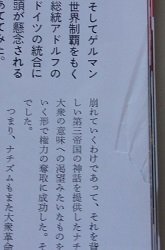 そしてゲルマン
世界制覇をもく
総統アドルフの
ドイツの統合に
頭が懸念される
あててみた。
崩れていくわけであって、それを背
しい第三帝国の神話を提供したナチ
大衆の意味への渇望みたいなもの
いく形で権力の奪取に成功した。そ
つまり、ナチズムもまた大衆革命